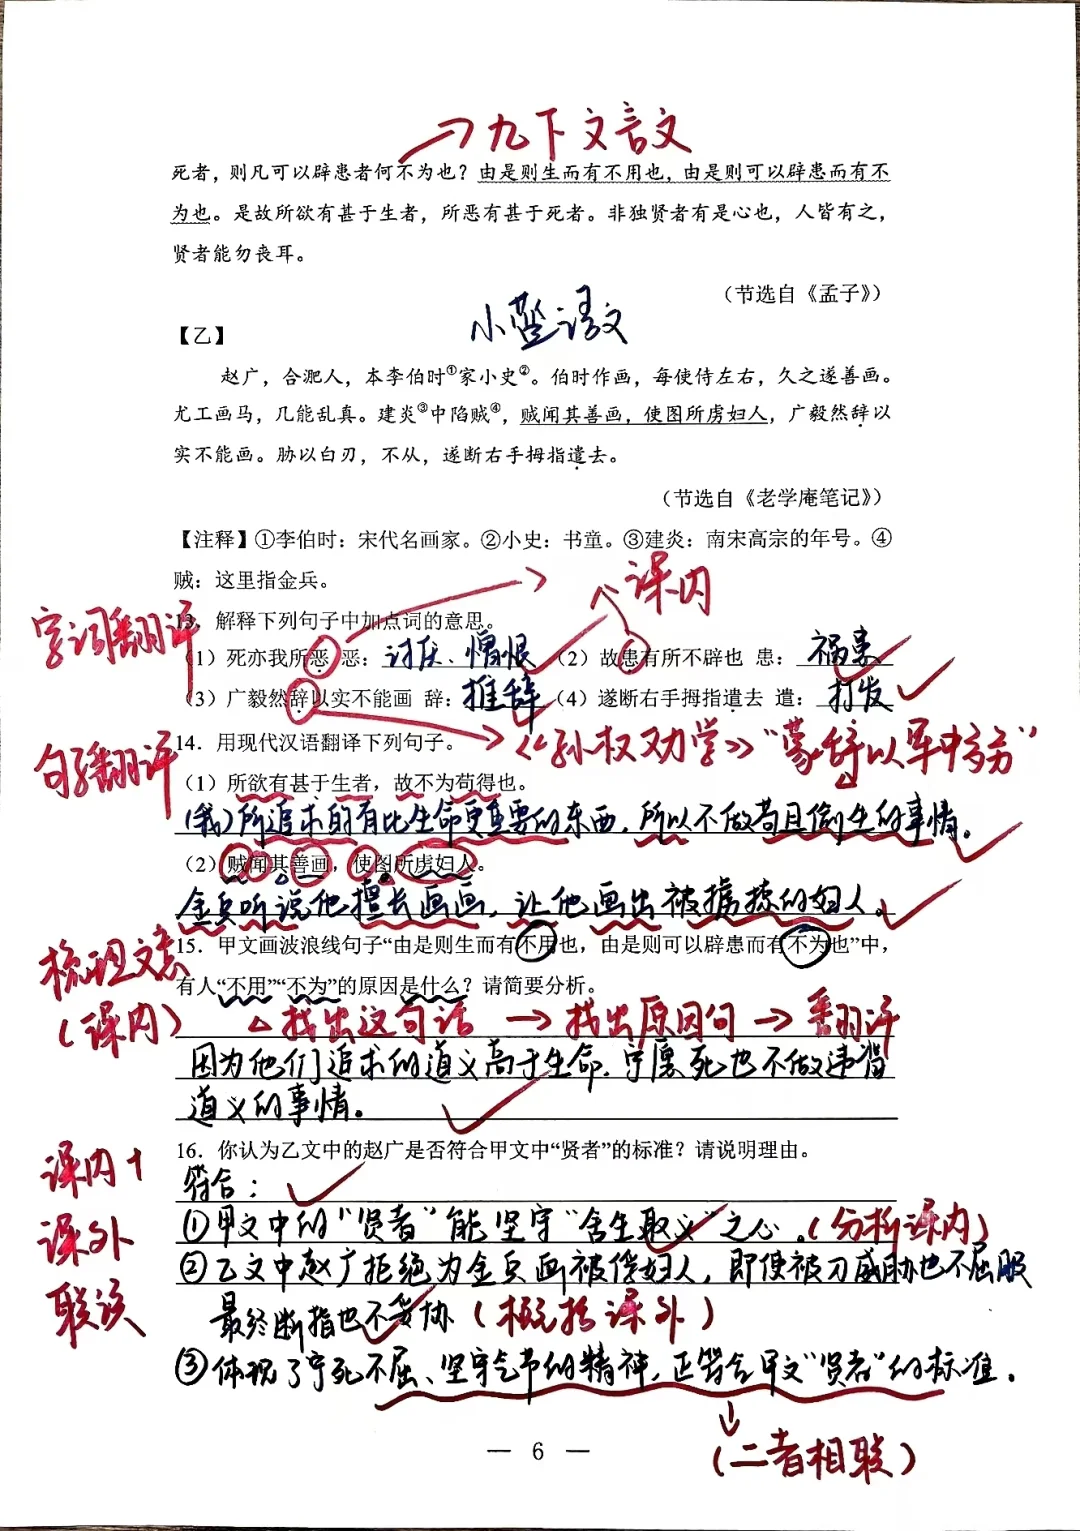 →九下文言文
死者，则凡可以辟患者何不为也？由是则生而有不用也，由是则可以辟患而有不
为也。是故所欲有甚于生者，所恶有甚于死者。非独贤者有是心也，人皆有之，
贤者能勿丧耳。
（节选自《孟子》）
【乙】
小蓝语文
赵广，合淝人，本李伯时①家小史②。伯时作画，每使侍左右，久之遂善画。
尤工画马，几能乱真。建炎③中陷贼④，贼闻其善画，使图所虏妇人，广毅然辞以
实不能画。胁以白刃，不从，遂断右手拇指遣去。
（节选自《老学庵笔记》）
【注释】①李伯时：宋代名画家。②小史：书童。③建炎：南宋高宗的年号。④
贼：这里指金兵。
课内
字词翻译
13．解释下列句子中加点词的意思。
（1）死亦我所恶 恶：讨厌、憎恨 （2）故患有所不辟也 患：祸患
（3）广毅然辞以实不能画 辞：推辞 （4）遂断右手拇指遣去 遣：打发
句子翻译
14．用现代汉语翻译下列句子。
→《孙权劝学》“蒙辞以军中多务”
（1）所欲有甚于生者，故不为苟得也。
（我）所追求的有比生命更重要的东西，所以不做苟且偷生的事情。
（2）贼闻其善画，使图所虏妇人。
金兵听说他擅长画画，让他画出被掳掠的妇人。
梳理文意
（课内）
15．甲文画波浪线句子“由是则生而有不用也，由是则可以辟患而有不为也”中，
有人“不用”“不为”的原因是什么？请简要分析。
找出这句话→找出原因句→翻译
因为他们追求的道义高于生命，宁愿死也不做违背
道义的事情。
课内+
课外
联读
16．你认为乙文中的赵广是否符合甲文中“贤者”的标准？请说明理由。
符合：
①甲文中的“贤者”能坚守“舍生取义”之心。（分析课内）
②乙文中赵广拒绝为金兵画被俘妇人，即使被刀威胁也不屈服
最终断指也不妥协（概括课外）
③体现了宁死不屈、坚守气节的精神，正符合甲文“贤者”的标准。
（二者相联）
— 6 —